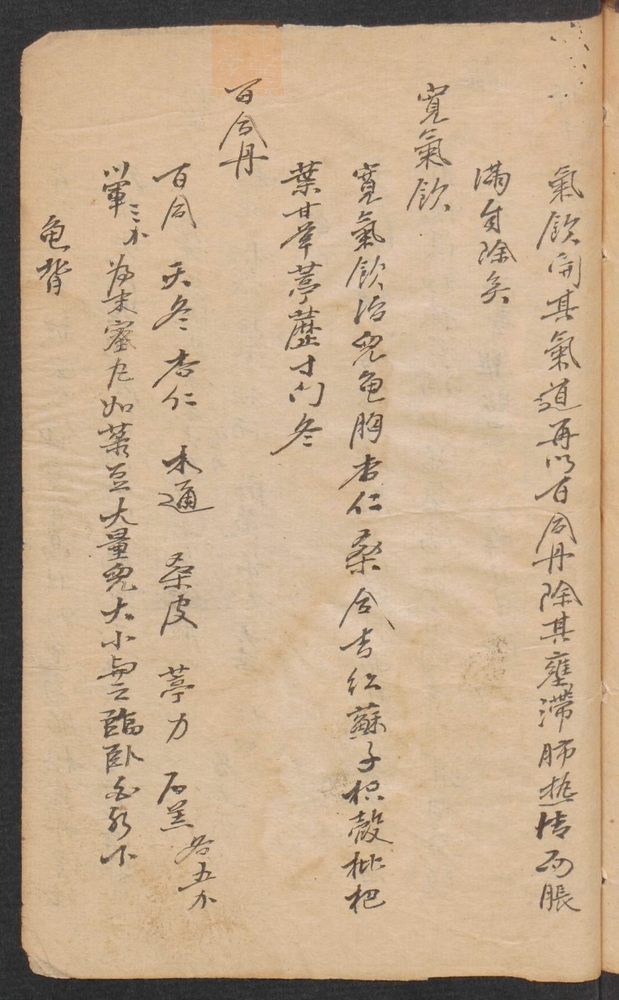 氣飲開其氣道再以百合丹除其壅滯肺热清而脹
滿自除矣
寬氣飲
寬氣飲治兒龟胸杏仁桑合吉红蘇子枳殼枇杷
葉甘草葶藶寸门冬
百合丹
百合 天冬 杏仁 木通 桑皮 葶力 石羔 各五分
军三分 為末蜜丸如菉豆大量兒大小與之臨卧白衤下
龟背